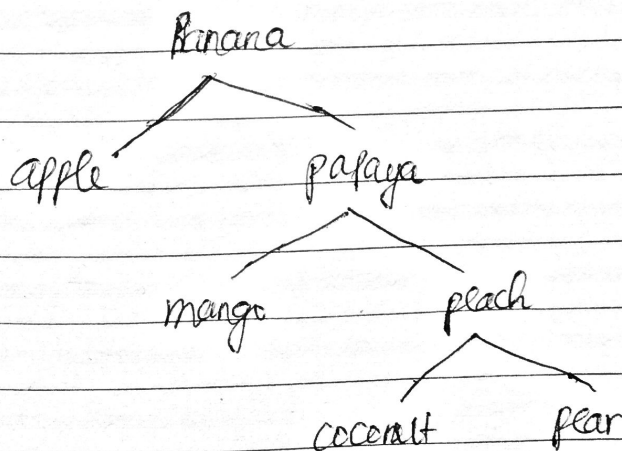 Banana
apple papaya
mango peach
coconut pear